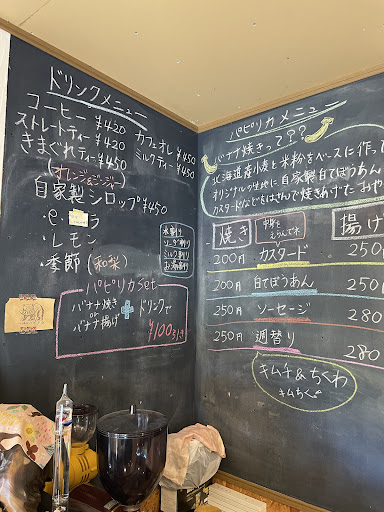 ドリンクメニュー
コーヒー ¥420
ストレートティー ¥420
カフェオレ ¥450
きまぐれティー ¥450
ミルクティー ¥450
(オレンジ&ジンジャー
自家製シロップ ¥450
・レモン
・季節 (和梨)
水割り
ソーダ割り
ミルク割り
お湯割り
パピリカset
バナナ焼き
or
バナナ揚げ
+
ドリンクで
¥100引き
パピリカメニュー
バナナ焼きって??
北海道産小麦と米粉をベースに作って
オリジナルの生地に自家製白てぼうあん
カスタードなどをはさんで焼きあげたおや
焼き
中身を
えらんでネ
揚げ
200円 カスタード 250
200円 白てぼうあん 250
250円 ソーセージ 280
250円 週替り 280
キムチ&ちくわ
キムちく